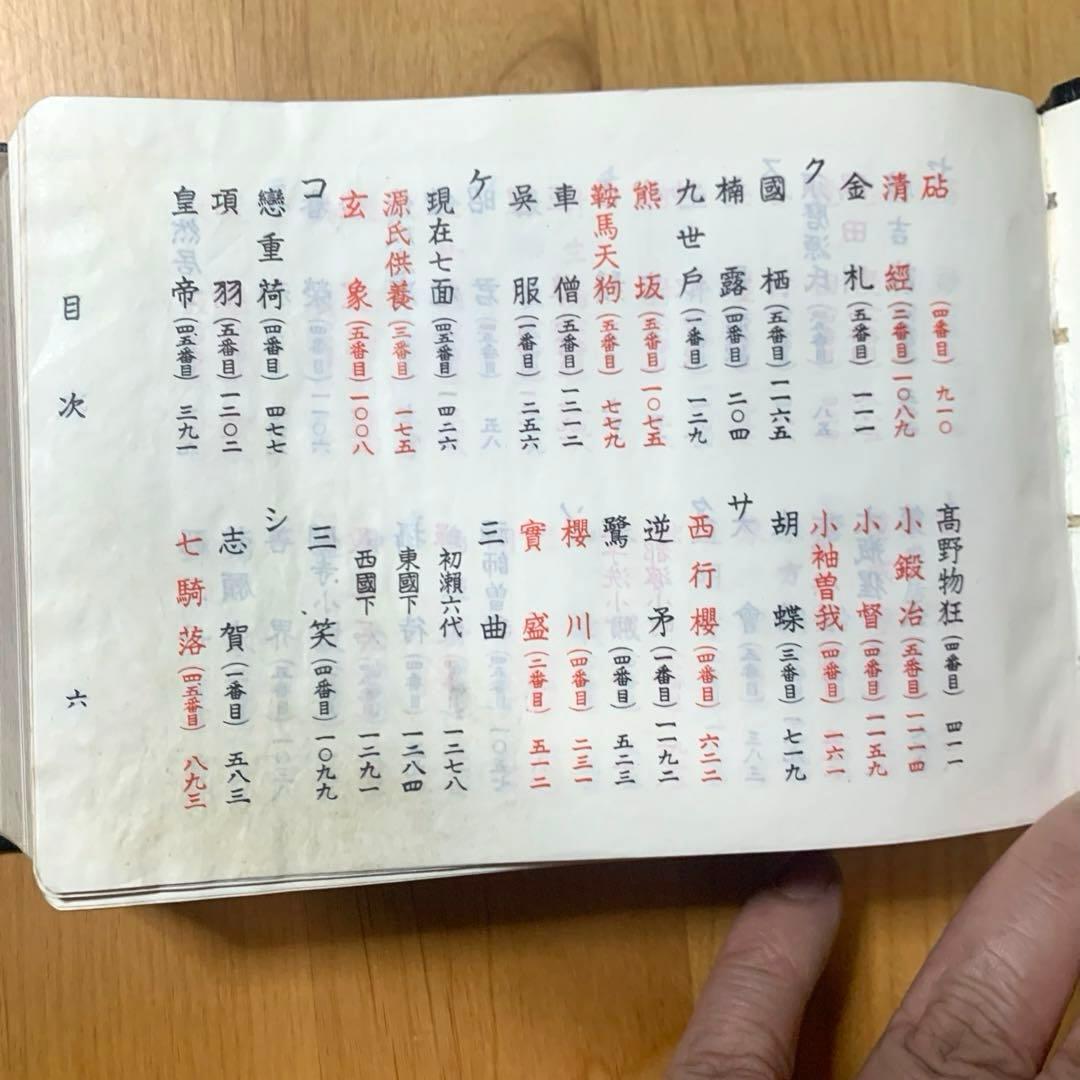 砧 (四番目) 九一〇
清經 (二番目) 一〇八九
金札 (五番目) 一一一
ク
國栖 (五番目) 一一六五
楠露 (四番目) 二〇四
九世戶 (一番目) 一二九
熊坂 (五番目) 一〇七五
鞍馬天狗 (五番目) 七七九
車僧 (五番目) 一二一二
吳服 (一番目) 二五六
ケ
現在七面 (四、五番目) 一四二六
源氏供養 (三番目) 一七五
玄象 (五番目) 一〇〇八
コ
戀重荷 (四番目) 四七七
項羽 (五番目) 一二〇二
皇帝 (四、五番目) 三九一
高野物狂 (四番目) 四一一
小鍛冶 (五番目) 一一一四
小督 (四番目) 一一五九
小袖曽我 (四番目) 一六一
胡蝶 (三番目) 七一九
サ
西行櫻 (四番目) 六二二
逆矛 (一番目) 一一九二
鷺 (四番目) 五二三
櫻川 (四番目) 二三一
實盛 (二番目) 五一二
三曲
初瀨六代 一二七八
東國下 一二八四
西國下 一二九一
三笑 (四番目) 一〇九九
シ
志賀 (一番目) 五八三
七騎落 (四、五番目) 八九三
目次
六